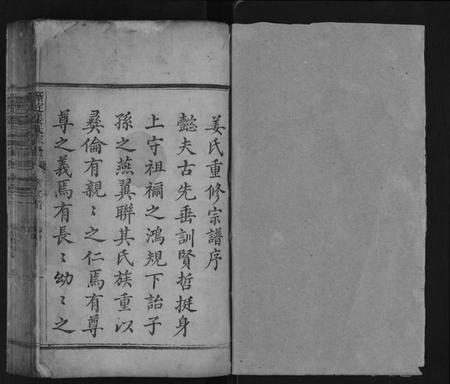 姜氏重修宗譜序
懿夫古先垂訓賢哲挺身
上守祖禰之鴻規下詒子
孫之燕翼聯其氏族重以
彞倫有親〻之仁焉有尊
尊之義焉有長〻幼〻之